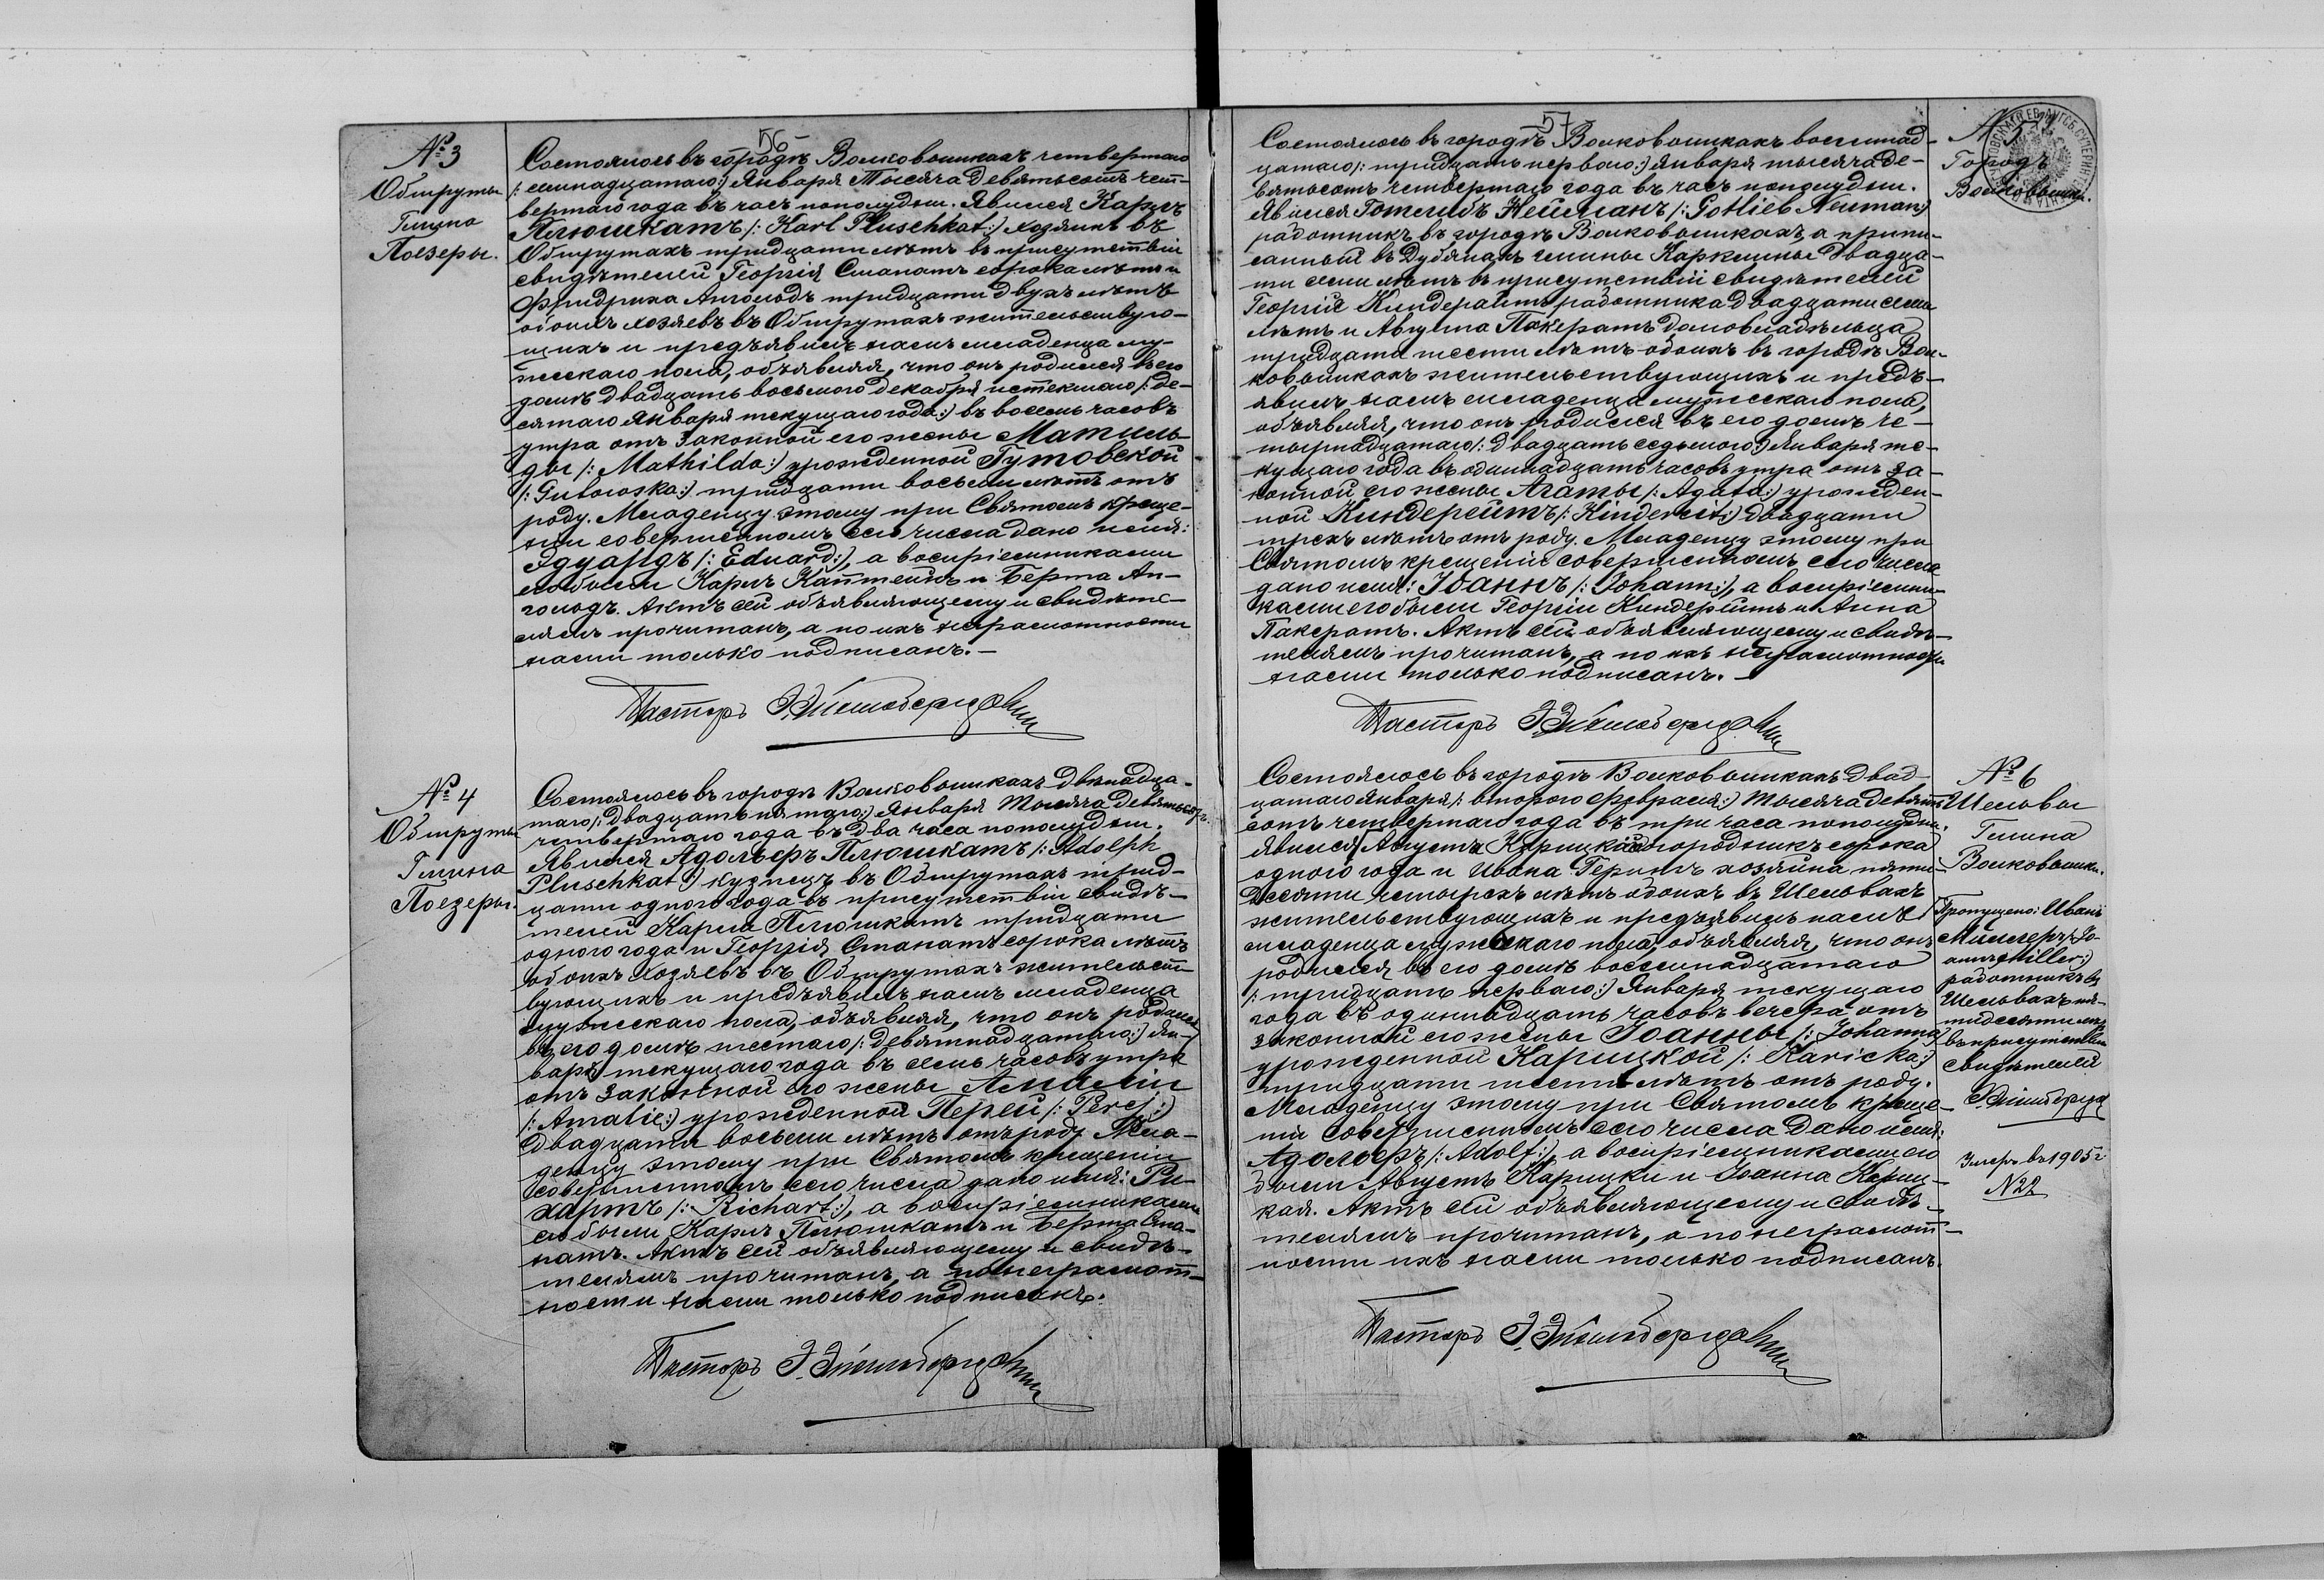 56
№ 3
Обшруты
Гмина
Поезеры.
Состоялось въ городѣ Волковышкахъ четвертаго
/: семнадцатаго:/ Января Тысяча девятьсотъ чет-
вертаго года въ часъ пополудни. Явился Карлъ
Плюшкатъ /: Karl Pluschkat:/ хозяинъ въ
Обшрутахъ тридцати лѣтъ въ присутствіи
свидѣтелей Георгія Станатъ сорока лѣтъ и
Фридриха Ангольдъ тридцати двухъ лѣтъ
обоихъ хозяевъ въ Обшрутахъ жительствую-
щихъ и предъявилъ намъ младенца му-
жескаго пола, объявляя, что онъ родился въ его
домѣ двадцать восьмого декабря истекшаго /: де-
сятаго Января текущаго года:/ въ восемь часовъ
утра отъ законной его жены Матиль-
ды /: Mathilda:/ урожденной Гутовской
/: Gutowska:/ тридцати восьми лѣтъ отъ
роду. Младенцу этому при Святомъ креще-
ніи совершенномъ сего числа дано имя:
Эдуардъ /: Eduard:/, а воспріемниками
его были Карлъ Каптейнъ и Берта Ан-
гольдъ. Актъ сей объявляющему и свидѣте-
лямъ прочитанъ, а по ихъ неграмотности
нами только подписанъ. —
Пасторъ
№ 4
Обшруты
Гмина
Поезеры.
Состоялось въ городѣ Волковышкахъ двѣнадца-
таго /: двадцать пятаго:/ Января Тысяча девятьсотъ
четвертаго года въ два часа пополудни.
Явился Адольфъ Плюшкатъ /: Adolph
Pluschkat:/ кузнецъ въ Обшрутахъ трид-
цати одного года въ присутствіи свидѣ-
телей Карла Плюшкатъ тридцати
одного года и Георгія Станатъ сорока лѣтъ
обоихъ хозяевъ въ Обшрутахъ жительст-
вующихъ и предъявилъ намъ младенца
мужескаго пола, объявляя, что онъ родился
въ его домѣ шестаго /: девятнадцатаго:/ Ян-
варя текущаго года въ семь часовъ утра
отъ законной его жены Амаліи
/: Amalie:/ урожденной Перей /: Perej:/
двадцати восьми лѣтъ отъ роду. Мла-
денцу этому при Святомъ крещеніи
совершенномъ сего числа дано имя: Ри-
хартъ /: Richart:/, а воспріемниками
его были Карлъ Плюшкатъ и Берта Ста-
натъ. Актъ сей объявляющему и свидѣ-
телямъ прочитанъ, а по неграмот-
ности нами только подписанъ.
Пасторъ
57
№ 5
Городъ
Волковышки.
Состоялось въ городѣ Волковышкахъ восемнад-
цатаго /: тридцать перваго:/ Января тысяча де-
вятьсотъ четвертаго года въ часъ пополудни.
Явился Готлибъ Нейманъ /: Gotlieb Neuman:/
работникъ въ городѣ Волковышкахъ, а припи-
санный въ Дубянахъ гмины Каркелины двадца-
ти семи лѣтъ въ присутствіи свидѣтелей
Георгія Киндерайтъ работника двадцати семи
лѣтъ и Августа Пакератъ домовладѣльца
тридцати шести лѣтъ обоихъ въ городѣ Вол-
ковышкахъ жительствующихъ и предъ-
явилъ намъ младенца мужескаго пола,
объявляя, что онъ родился въ его домѣ че-
тырнадцатаго /: двадцать седьмого:/ Января те-
кущаго года въ одиннадцать часовъ утра отъ за-
конной его жены Агаты /: Agata:/ урожден-
ной Киндерейтъ /: Kindereit:/ двадцати
трехъ лѣтъ отъ роду. Младенцу этому при
Святомъ крещеніи совершенномъ сего числа
дано имя: Іоаннъ /: Johann:/, а воспріемни-
ками его были Георгій Киндерейтъ и Анна
Пакератъ. Актъ сей объявляющему и свидѣ-
телямъ прочитанъ, а по ихъ неграмотности
нами только подписанъ. —
Пасторъ
№ 6
Шельвы
Гмина
Волковышки.
Пропущено: Иванъ
Миллеръ /: Jo-
ann Miller:/
работникъ въ
Шельвахъ пя-
тидесяти лѣтъ
въ присутствіи
свидѣтелей
Умеръ въ 1905 г.
N 22
Состоялось въ городѣ Волковышкахъ двад-
цатаго Января /: второго февраля:/ тысяча девять-
сотъ четвертаго года въ три часа пополудни.
Явился Августа Карицкій огородникъ сорока
одного года и Ивана Герингъ хозяина пяти-
десяти четырехъ лѣтъ обоихъ въ Шельвахъ
жительствующихъ и предъявилъ намъ
младенца мужескаго пола, объявляя, что онъ
родился въ его домѣ восемнадцатаго
/: тридцать перваго:/ Января текущаго
года въ одиннадцать часовъ вечера отъ
законной его жены Іоанны /: Johanna:/
урожденной Карицкой /: Karicka:/
тридцати шести лѣтъ отъ роду.
Младенцу этому при Святомъ креще-
ніи совершенномъ сего числа дано имя:
Адольфъ /: Adolf:/, а воспріемниками его
были Августъ Карицки и Іоанна Кариц-
кая. Актъ сей объявляющему и свидѣ-
телямъ прочитанъ, а по неграмот-
ности ихъ нами только подписанъ.
Пасторъ